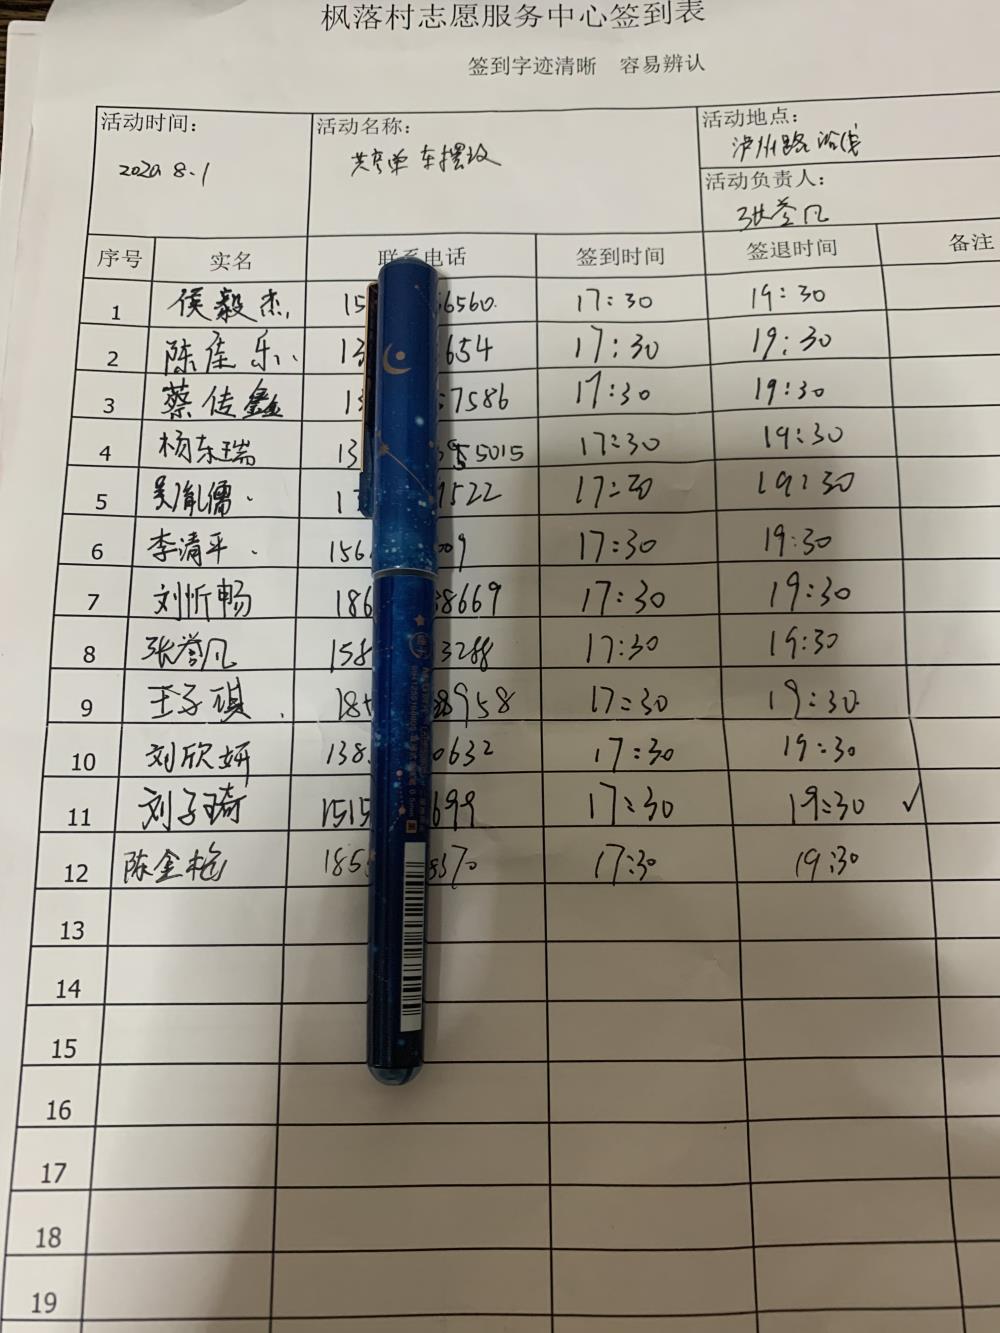 枫落村志愿服务中心签到表
签到字迹清晰 容易辨认
活动时间： 活动名称： 活动地点：
2020 8.1 共享单车摆放 泸州路沿线
活动负责人：
张誉凡
序号 实名 联系电话 签到时间 签退时间 备注
1 侯毅杰 15 6560 17:30 19:30
2 陈佳乐 13 654 17:30 19:30
3 蔡传鑫 13 57586 17:30 19:30
4 杨东瑞 13 5015 17:30 19:30
5 吴胤儒 1 1522 17:30 19:30
6 李清平 156 009 17:30 19:30
7 刘忻畅 186 38669 17:30 19:30
8 张誉凡 158 3288 17:30 19:30
9 王子琪 18 8958 17:30 19:30
10 刘欣妍 138 0632 17:30 19:30
11 刘子琦 1515 699 17:30 19:30 ✓
12 陈金 185 370 17:30 19:30
13
14
15
16
17
18
19